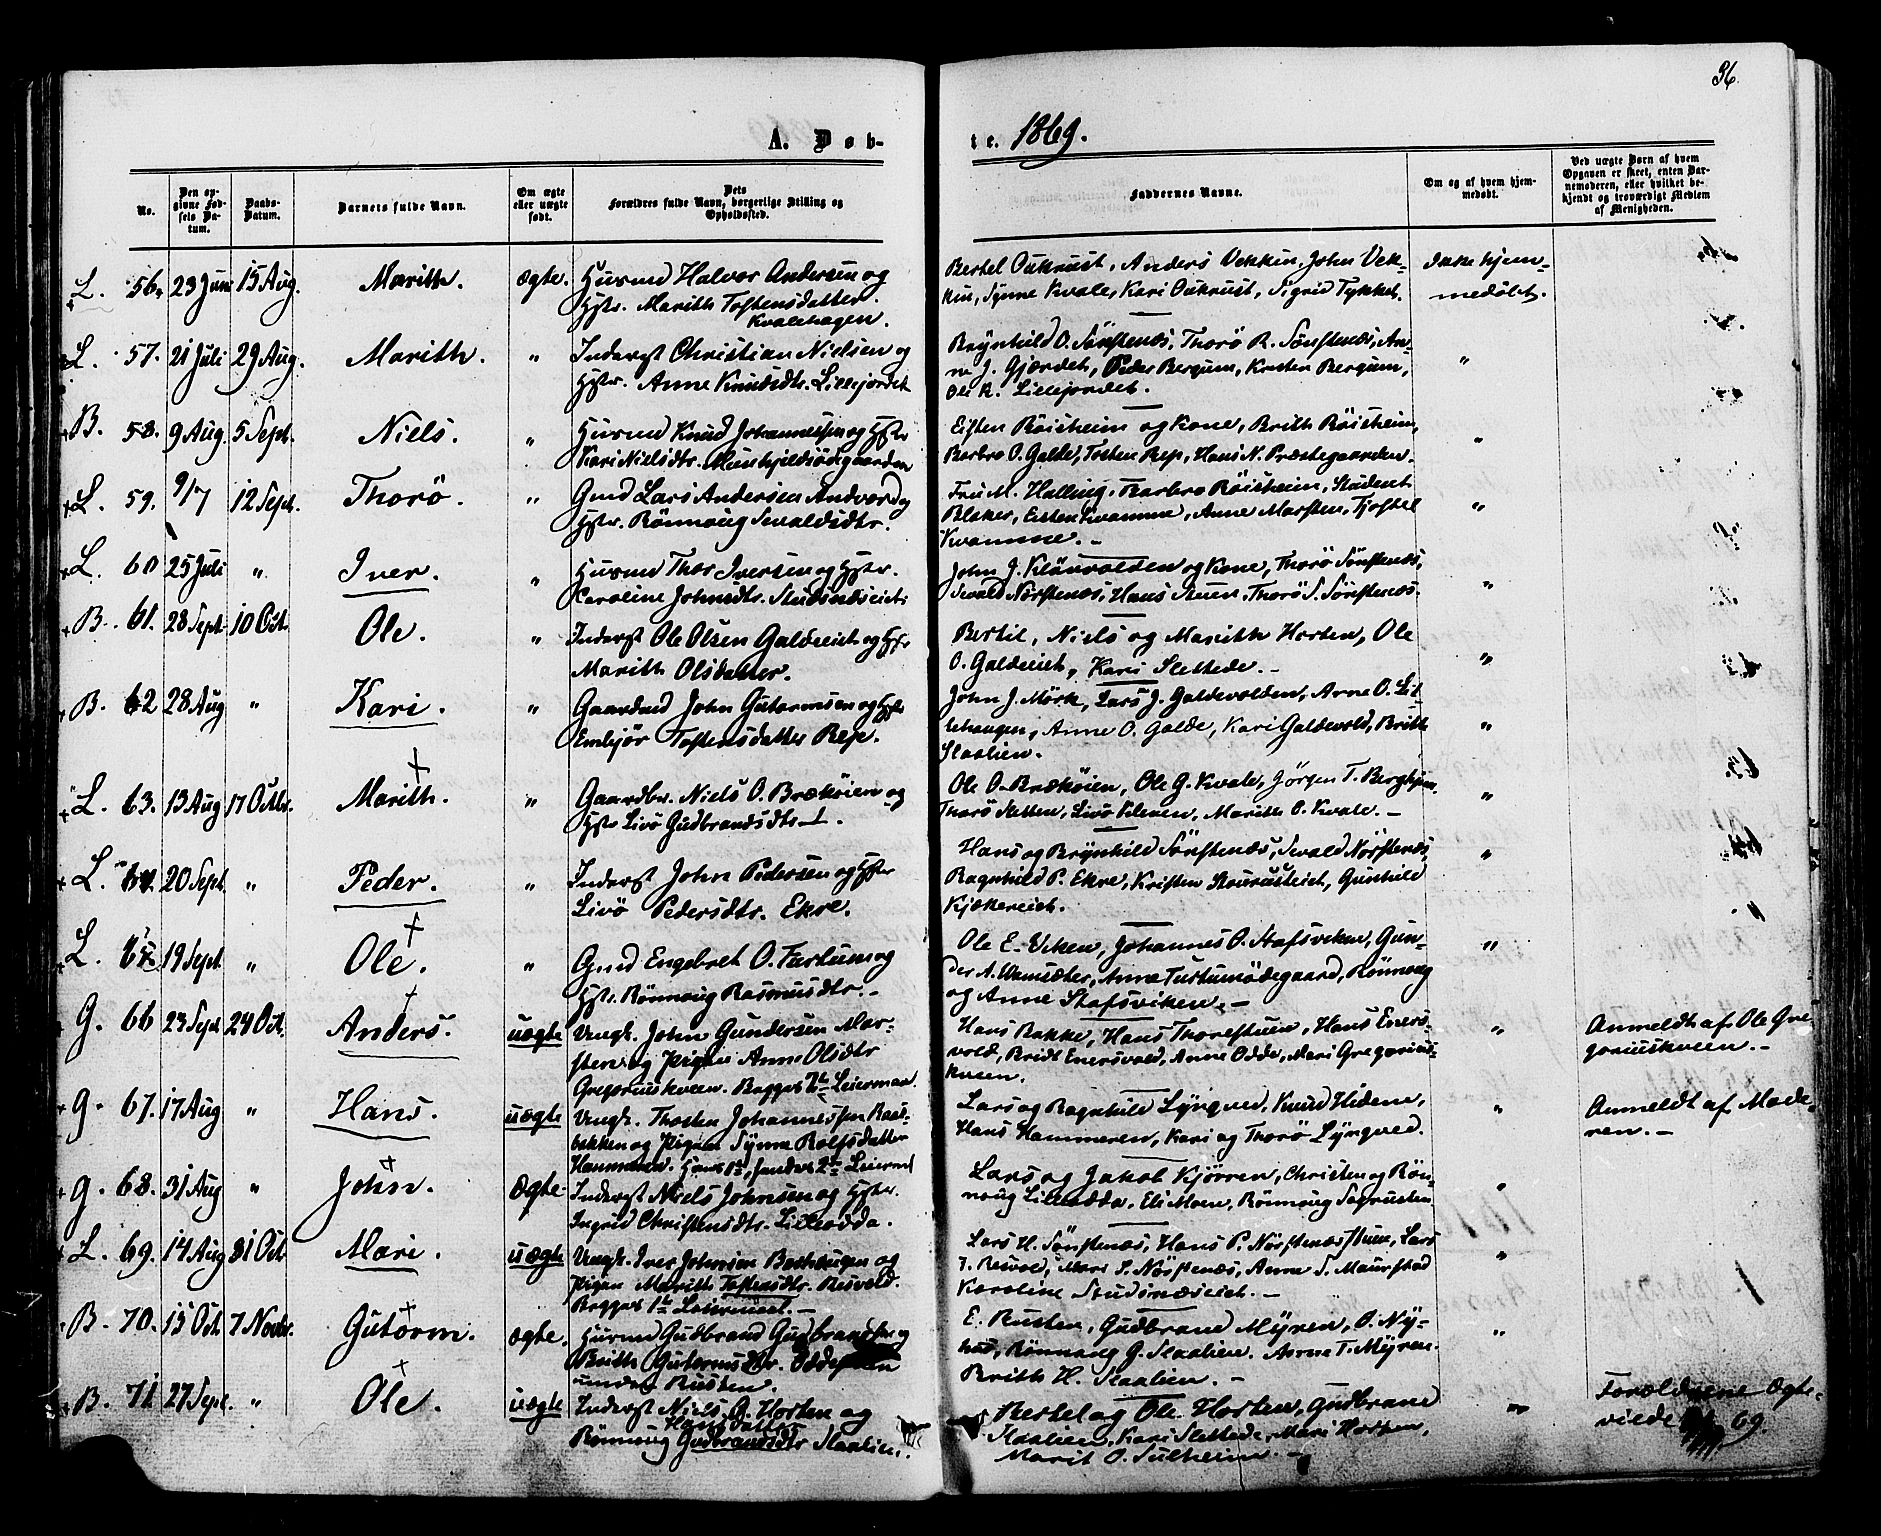 36.
A. Døb-
te. 1869.
No.
Den opgivne Fødsels Datum.
Daabs-Datum.
Barnets fulde Navn.
Om ægte eller uægte født.
Dets Forældres fulde Navn, borgerlige Stilling og Opholdssted.
Faddernes Navne.
Om og af hvem hjemmedøbt.
Ved uægte Børn af hvem Opgaven er skeet, enten Barnemoderen, eller hvilket bekjendt og troværdigt Medlem af Menigheden.
L. 56. 23 Juni 15 Aug. Marith. ægte. Husmd Halvor Andersen og
Hstr. Marith Tostensdatter
Kvalehagen.
Bertel Oukrust, Anders Vekkin, John Vek-
kin, Synne Kvale, Kari Oukrust, Sigrid Tykket.
Ikke hjem-
medøbt.
L. 57. 21 Juli 29 Aug. Marith. " Inderst Christian Nielsen og
Hstr. Anne Knudsdtr. Lillejordet
Brynhild O. Sønstenæs, Thorø R. Sønstenæs, An-
ne J. Gjærdet, Peder Bergum, Kristen Bergum,
Ole K. Lillejordet.
"
B. 58. 9 Aug. 5 Sept. Niels. " Husmd Knud Johannessen og Hstr
Kari Nielsdtr. Munhjeldsødegaarden
Eisten Røisheim og Kone, Brith Røisheim,
Barbro O. Galde, Tosten Rep, Hans N. Præstegaarden.
"
L. 59. 9/7 12 Sept. Thorø. " Gmd Lars Andersen Andvord og
Hstr. Rønnoug Sevaldsdtr.
Fru M. Halling, Barbro Røisheim, Student
Blaker, Eisten Kvamme, Anne Marsten, Tjostel
Kvamme.
"
L. 60 25 Juli " Iver. " Husmd Thor Iversen og Hstr.
Caroline Johnsdtr. Studsnæseiet.
John J. Kløvvolden og Kone, Thorø Sønstenæs,
Sevald Nørstenæs, Hans Stuen, Thorø S. Sønstenæs.
"
B. 61. 28 Sept 10 Oct. Ole. " Inderst Ole Olsen Galdeeiet og Hstr
Marith Olsdatter.
Bertil, Niels og Marith Horten, Ole
O. Galdeeiet, Kari Slettede.
"
B. 62 28 Aug " Kari. " Gaardmd John Gutormsen og Hstr
Embjør Tostensdatter Rep.
John J. Mørk, Lars J. Galdevolden, Arne O. Lil-
lehaugen, Anne O. Galde, Kari Galdevold, Brith
Slaalien.
"
L. 63. 13 Aug 17 Octbr. Marith. " Gaardbr. Niels O. Brækøien og
Hstr Livø Gudbrandsdtr.
Ole O. Brækøien, Ole G. Kvale, Jørgen T. Berghjem,
Thorø Sletten, Livø Vileven, Marith O. Kvale.
"
L. 64. 20 Sept. " Peder. " Inderst John Pedersen og Hstr
Livø Pedersdtr. Ekre.
Hans og Brynhild Sønstenæs, Sevald Nørstenæs,
Ragnhild P. Ekre, Kristen Stourusteiet, Gunhild
Kjækereiet.
"
L. 65. 19 Sept. " Ole. " Gmd Engebret O. Furlum og
Hstr. Rønnoug Rasmusdtr.
Ole E. Viken, Johannes O. Stafsviken, Gun-
der A. , Anne Turtumødegaard, Rønnoug
og Anne Stafsviken.
"
G. 66 23 Sept 24 Oct. Anders. uægte Ungk. John Gundersen Mar-
sten og Pigen Anne Olsdtr
Gregoriuskveen. Begges 2det Leiermaal.
Hans Bakke, Hans Thorestuen, Hans Eners-
vold, Bridt Enersvold, Anne Odde, Mari Gregorius-
kveen.
"
Anmeldt af Ole Gre-
goriuskveen.
G. 67. 17 Aug " Hans. uægte Ungk. Thosten Johannessen Baas-
bakken og Pigen Synne Rolfsdatter
Hammeren. Hans 1ste, hendes 2det Leiermal
Lars og Ragnhild Lyngved, Knud Hidem,
Hans Hammeren, Kari og Thorø Lyngved.
"
Anmeldt af Mode-
ren.
G. 68. 31 Aug " John. Ægte. Inderst Niels Johnsen og Hstr.
Ingrid Christensdtr. Lilleodda.
Lars og Jakob Kjørren, Christen og Røn-
noug Lilleodda, Eli Moen, Rønnoug Sagrusten
"
L. 69. 14 Aug 31 Oct Mari. uægte Ungk. Iver Johnsen Bachaugen og
Pigen Marith Tostensdtr. Resvold.
Begges 1ste Leiermaal.
Lars H. Sønstenæs, Hans P. Nørstenæsstuen, Lars
T. Resvold, Mari S. Nørstenæs, Anne S. Maurstad
Karoline Studsnæseiet.
"
B. 70. 15 Oct. 7 Novbr. Gutorm. ægte. Husmd Gudbrand Gudbrandsen og
Brith Gutormsdtr.
under Rusten.
E. Rusten, Gudbrand Myren, O. Ny-
hus, Rønnoug G. Slaalien. Anne T. Myren.
Brith H. Slaalien.
"
B. 71. 27 Sept. " Ole. uægte Inderst Niels O. Horten og
Hansdatter
Rønnoug Gudbrandsdtr Slaalien.
Bertel og Ole Horten, Gudbrand
Slaalien, Kari Slettede, Mari Horten,
Marit O. Sulheim.
"
Forældrene Ægte-
viede 69.